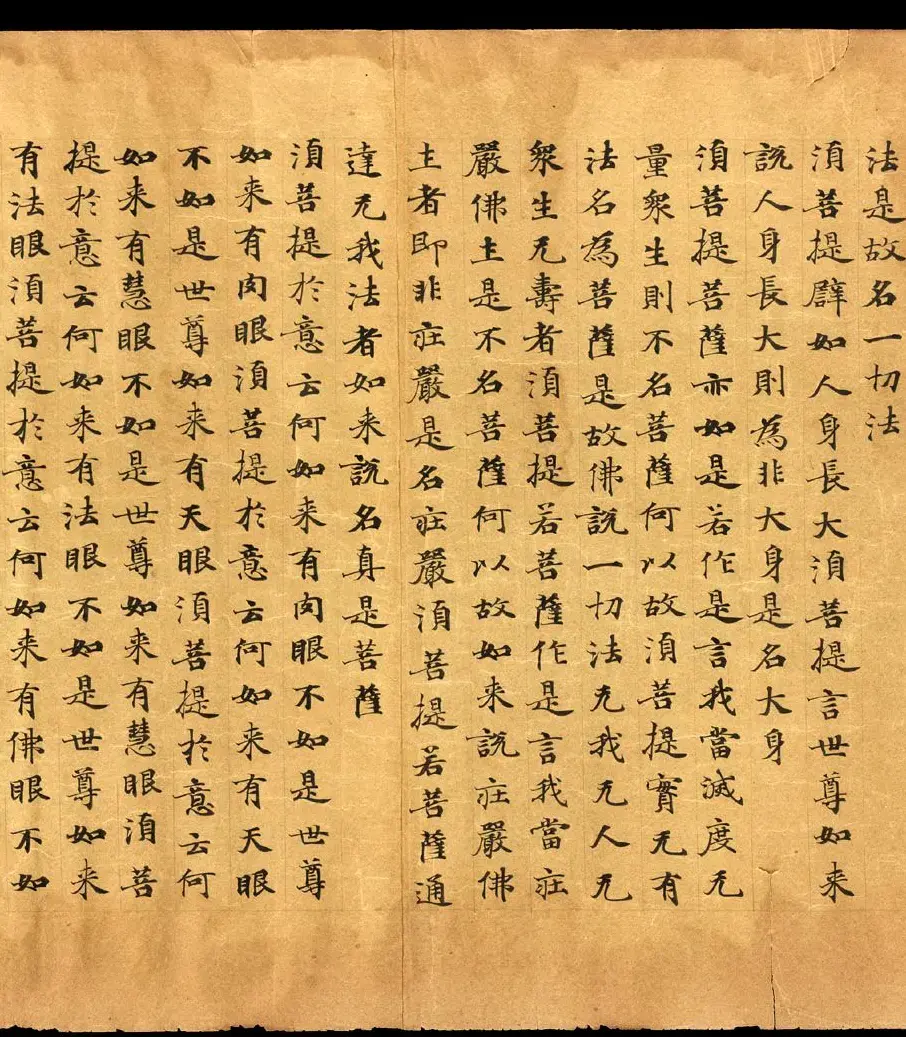 法是故名一切法
湏菩提辟如人身長大湏菩提言世尊如来
説人身長大則為非大身是名大身
湏菩提菩薩亦如是若作是言我當滅度无
量衆生則不名菩薩何以故湏菩提實无有
法名為菩薩是故佛説一切法无我无人无
衆生无壽者湏菩提若菩薩作是言我當庄
嚴佛土是不名菩薩何以故如来説庄嚴佛
土者即非庄嚴是名庄嚴湏菩提若菩薩通
達无我法者如来説名真是菩薩
湏菩提於意云何如来有肉眼不如是世尊
如来有肉眼湏菩提於意云何如来有天眼
不如是世尊如来有天眼湏菩提於意云何
如来有慧眼不如是世尊如来有慧眼湏菩
提於意云何如来有法眼不如是世尊如来
有法眼湏菩提於意云何如来有佛眼不如